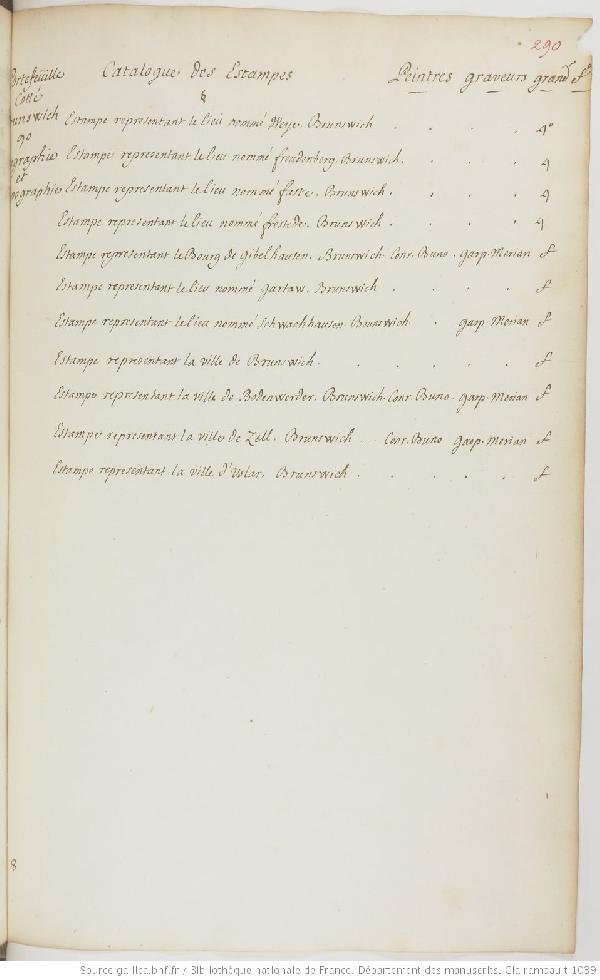 290
Portefeüille Catalogue des Estampes Peintres graveurs grand.r
Cotté
Brunswich
90
Estampe representant le lieu nommé Weye. Brunswich . . . . 4°
Estampe representant le lieu nommé freudenberg. Brunswich. . . . 4
et
Estampe representant le lieu nommé . Brunswich . . . . 4
Estampe representant le lieu nommé frestede. Brunswich . . . . 4
Estampe representant le Bourg de Gibelhausen. Brunswich. Conr. Buno. gasp. Merian f
Estampe representant le lieu nommé gartaw. Brunswich . . . . f
Estampe representant le lieu nommé Schwachhausen. Brunswich . gasp. Merian f
Estampe representant la ville de Brunswich . . . . . f
Estampe representant la ville de Bodenwerder. Brunswich. Conr. Buno. gasp. Merian f
Estampe representant la ville de Zell. Brunswich . . Conr. Buno gasp. Merian f
Estampe representant la ville d'Uslar. Brunswich . . . . . f
8
Source gallica.bnf.fr / Bibliothèque nationale de France. Département des manuscrits. Clairambault 1039